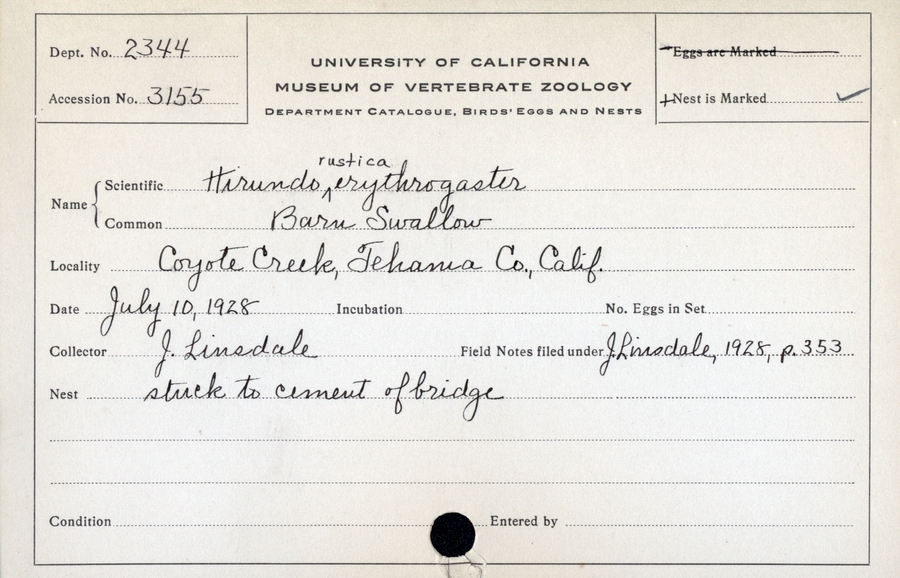 Dept. No. 2344
Accession No. 3155
UNIVERSITY OF CALIFORNIA
MUSEUM OF VERTEBRATE ZOOLOGY
DEPARTMENT CATALOGUE, BIRDS' EGGS AND NESTS
Eggs are Marked
+Nest is Marked ✓
Name
Scientific Hirundo rustica erythrogaster
Common Barn Swallow
Locality Coyote Creek, Tehama Co., Calif.
Date July 10, 1928 Incubation No. Eggs in Set
Collector J. Linsdale Field Notes filed under J. Linsdale, 1928, p. 353
Nest stuck to cement of bridge
Condition Entered by